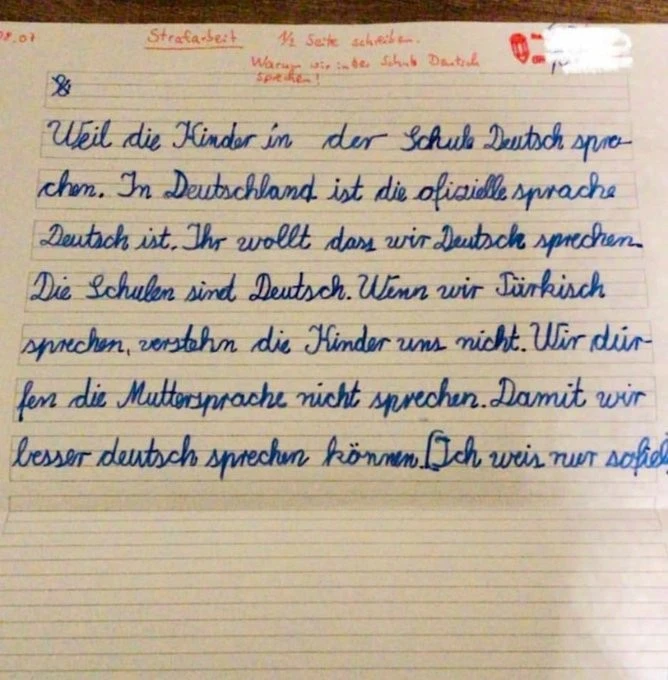 08.07 Strafarbeit 1/2 Seite schreiben.
Warum wir in der Schule Deutsch
sprechen!
Weil die Kinder in der Schule Deutsch spre-
chen. In Deutschland ist die ofizielle sprache
Deutsch ist. Ihr wollt dass wir Deutsch sprechen.
Die Schulen sind Deutsch. Wenn wir Türkisch
sprechen, verstehn die Kinder uns nicht. Wir dür-
fen die Muttersprache nicht sprechen. Damit wir
besser deutsch sprechen können. [Ich weis nur sofiel